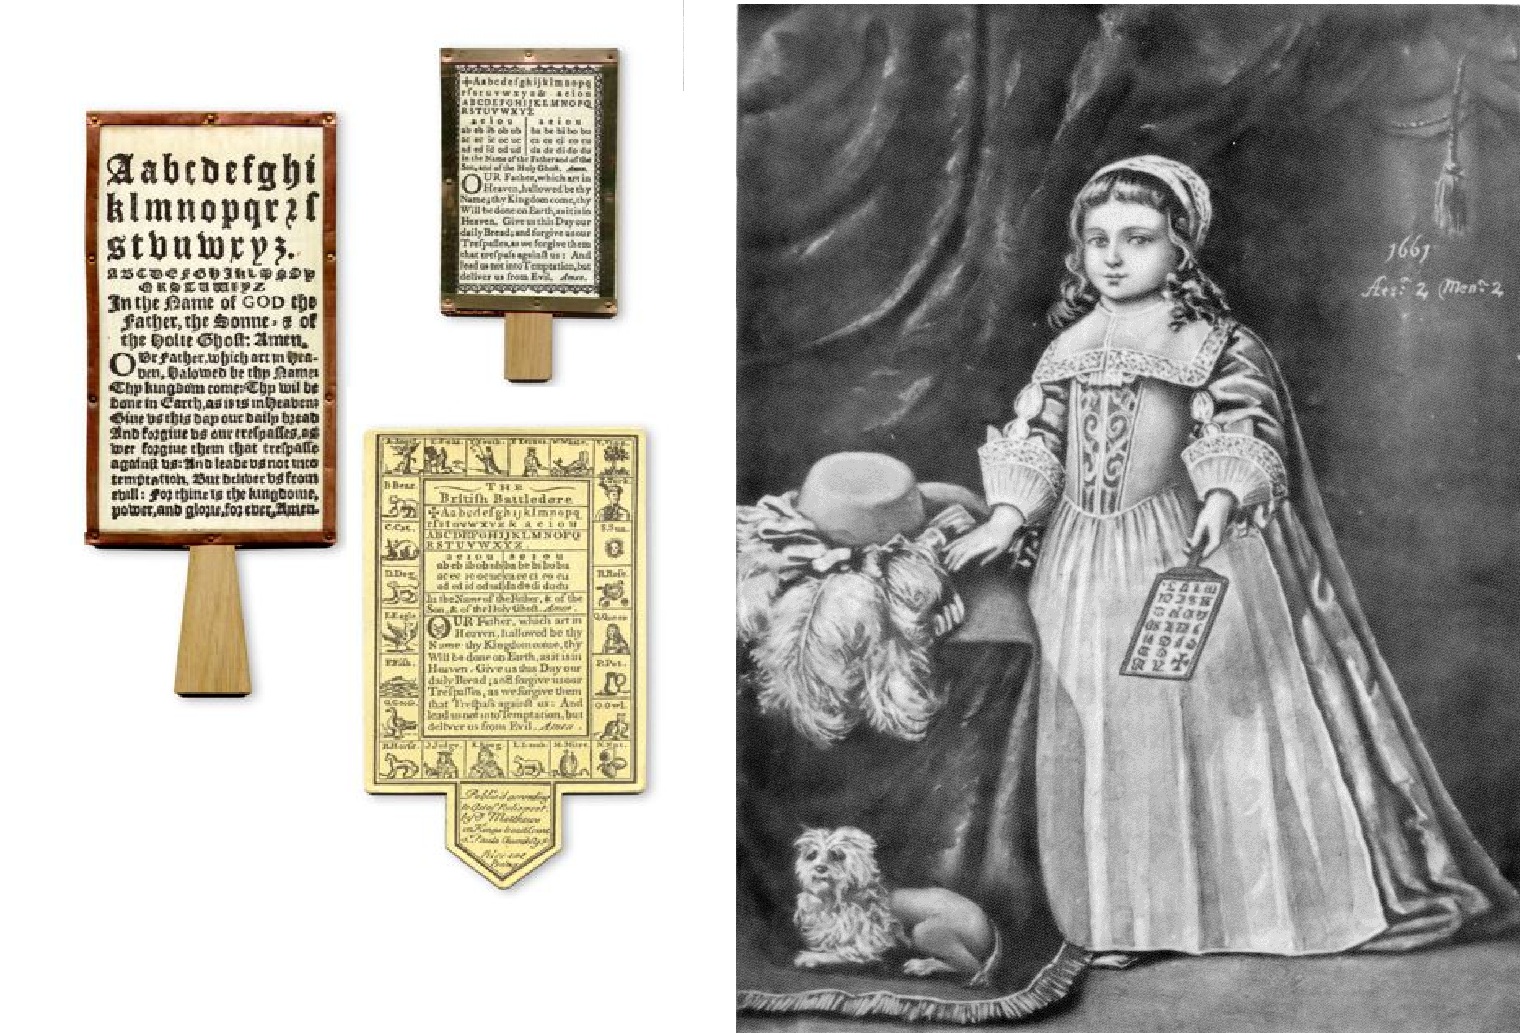 Aabcdefghi
klmnopqrꝛſ
stvuwxyz.
ABCDEFGHIKLMNOP
QRSTUWXYZ
In the Name of GOD the
Father, the Sonne, & of
the Holie Ghost: Amen.
OVr Father, which art in Hea-
ven, Halowed be thy Name:
Thy kingdom come: Thy wil be
done in Earth, as it is in Heaven:
Giue vs this day our daily bread
And forgiue vs our trespasses, as
wee forgiue them that trespasse
against vs: And leade vs not into
temptation, But deliver vs from
evill: For thine is the kingdome,
power, and glorie, for ever, Amen.
✠Aabcdefghijklmnopq
rſstuvwxyz& aeiou
ABCDEFGHIJKLMNOPQ
RSTUVWXYZ
a e i o u | a e i o u
ab eb ib ob ub | ba be bi bo bu
ac ec ic oc uc | ca ce ci co cu
ad ed id od ud | da de di do du
In the Name of the Father and of the
Son, and of the Holy Ghoſt. Amen.
OUR Father, which art in
Heaven, hallowed be thy
Name; thy Kingdom come, thy
Will be done on Earth, as it is in
Heaven. Give us this Day our
daily Bread; and forgive us our
Treſpaſſes, as we forgive them
that treſpaſs againſt us: And
lead us not into Temptation, but
deliver us from Evil. Amen.
V.Vine.
B Bear.
C.Cat.
D.Dog.
E.Eagle
F.Fish.
G.Gooſe.
H.Horſe. J.Judge. K.King L.Lamb M.Mouſe. N.Nut.
S.Sun.
R.Roſe.
Q.Queen
P.Pot.
O.Owl.
THE
Britiſh Battledore
✠Aabcdefghijklmnopq
rſstuvwxyz& aeiou
ABCDEFGHIJKLMNOPQ
RSTUVWXYZ.
a e i o u | a e i o u
ab eb ib ob ub | ba be bi bo bu
ac ec ic oc uc | ca ce ci co cu
ad ed id od ud | da de di do du
In the Name of the Father, & of the
Son, & of the Holy Ghoſt. Amen.
OUR Father, which art in
Heaven, hallowed be thy
Name thy Kingdom come, thy
Will be done on Earth, as it is in
Heaven. Give us this Day our
daily Bread; and forgive us our
Treſpaſſes, as we forgive them
that Treſpaſs againſt us: And
lead us not into Temptation, but
deliver us from Evil. Amen.
Publiſ'd according
to Act of Parliament
by
Matthews
1661